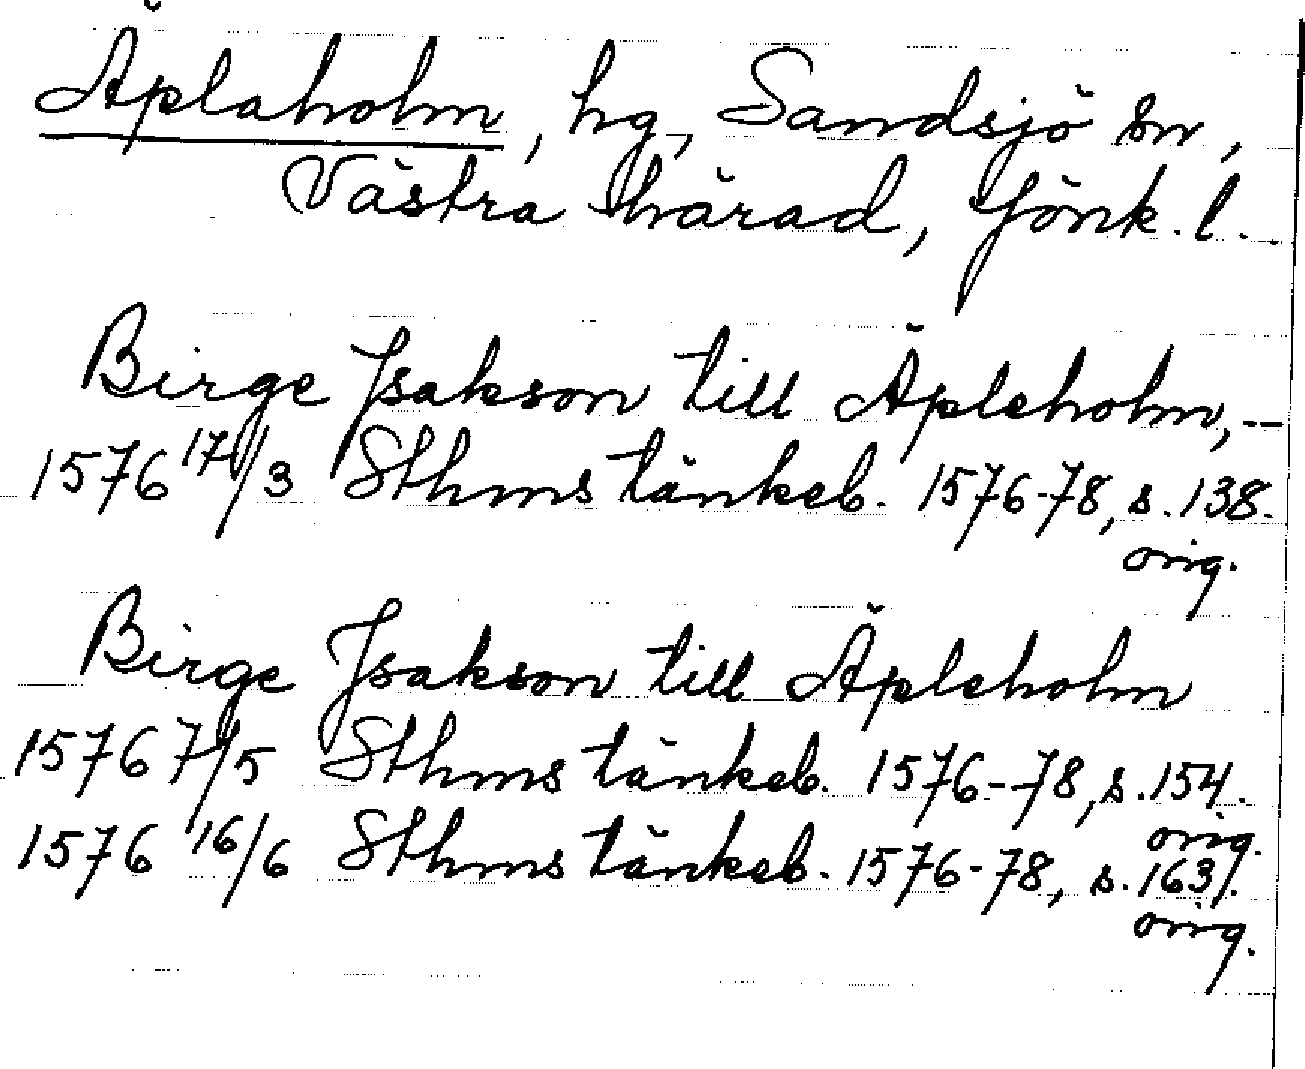 Äplaholm, hg, Sandsjö sn,
Västra härad, Jönk. l.
Birge Jsakson till Äpleholm, -
1576 17/3 Sthms tänkeb. 1576-78, s. 138.
orig.
Birge Jsakson till Äpleholm
1576 7/5 Sthms tänkeb. 1576-78, s. 154.
orig.
1576 16/6 Sthms tänkeb. 1576-78, s. 163.
orig.